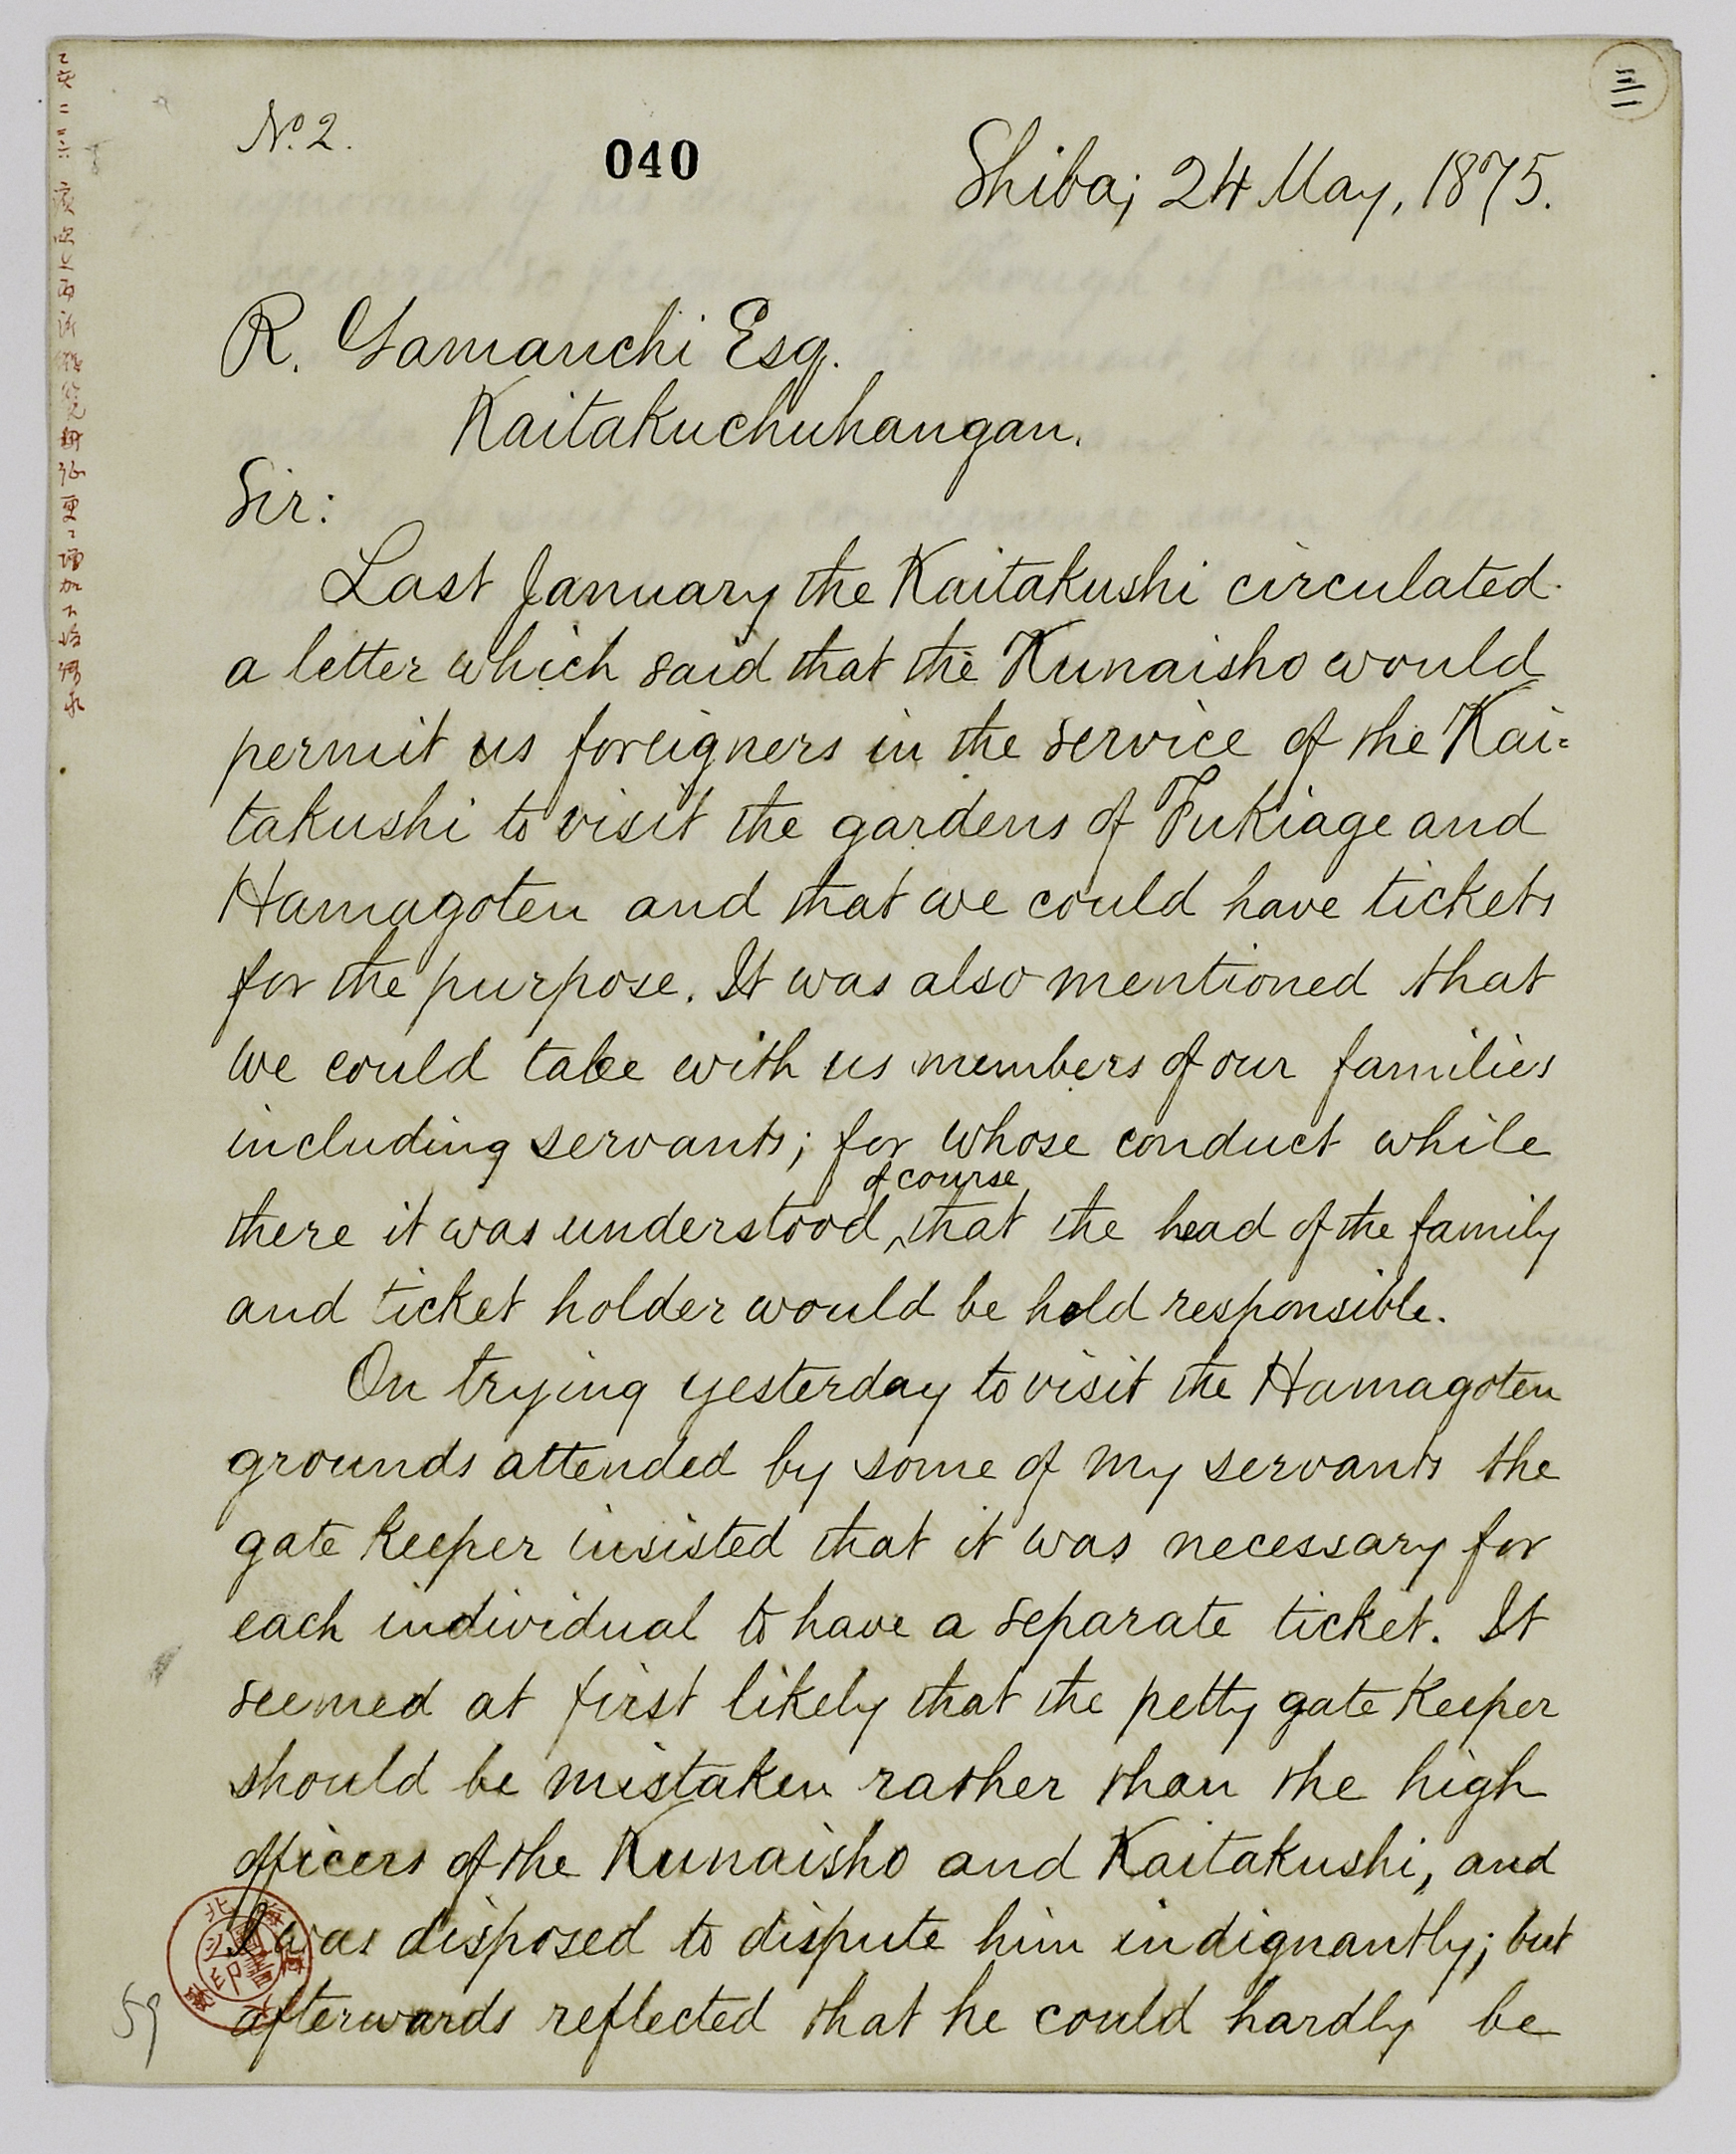 No. 2.
040
三一
Shiba; 24 May, 1875.
R. Yamauchi Esq.
Kaitakuchuhangan.
Sir:
Last January the Kaitakushi circulated
a letter which said that the Kunaisho would
permit us foreigners in the service of the Kai=
takushi to visit the gardens of Fukiage and
Hamagoten and that we could have tickets
for the purpose. It was also mentioned that
we could take with us members of our families
including servants; for whose conduct while
of course
there it was understood, ^ that the head of the family
and ticket holder would be held responsible.
On trying yesterday to visit the Hamagoten
grounds attended by some of my servants the
gate keeper insisted that it was necessary for
each individual to have a separate ticket. It
seemed at first likely that the petty gate keeper
should be mistaken rather than the high
officers of the Kunaisho and Kaitakushi, and
I was disposed to dispute him indignantly; but
afterwards reflected that he could hardly be
59